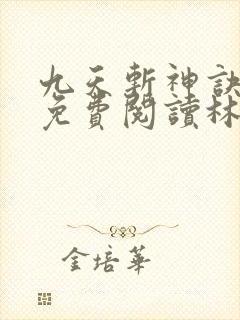 九天斬神訣
免費閱讀林
金培華